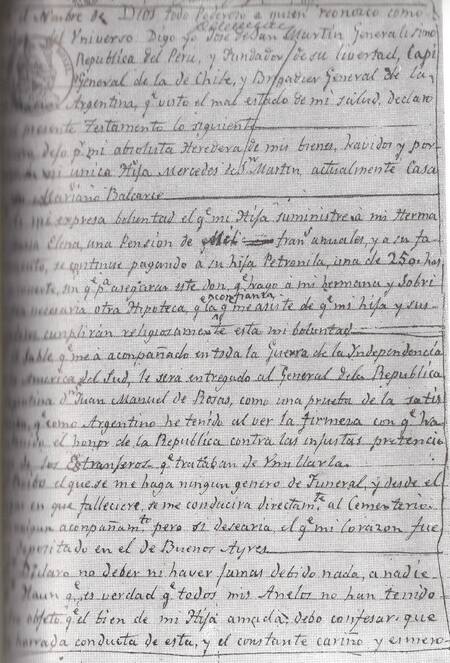 el Nombre de Dios todo Poderoso a quien reconozco como
del Universo: Digo yo José de San Martin, Generalisimo
Republica del Perú, y Fundador de su livertad, Capi
General de la de Chile, y Brigadier General de la
Argentina, qe visto el mal estado de mi salud, declaro
presente Testamento lo siguiente
dejo pr mi absoluta Heredera de mis bienes, havidos y por
mi unica Hija Mercedes de Sn Martin, actualmente Casa
Mariano Balcarce
mi expresa boluntad el qe mi Hija suministre á mi Herma
Elena, una Pension de Mil franco anuales, y a su fa
to, se continue pagando a su hija Petronila, una de 250 has
muerte, sin qe pa asegurar este don qe hago a mi hermana y Sobri
necesaria otra Hipoteca qe la confianza qe me asiste de qe mi hija y sus
cumplirán religiosamente esta mi boluntad
Sable qe me a acompañado en toda la Guerra de la Independencia
America del Sud, le sera entregado al General de la Republica
Dn Juan Manuel de Rosas, como una prueba de la satis
qe como Argentino he tenido al ver la firmeza con qe ha
el honor de la Republica contra las injustas pretencio
de los Extranjeros qe trataban de Umillarla.
el que se me haga ningun genero de Funeral, y desde el
en que falleciere, se me conducira directamte al Cementerio
acompañamto pero si desearia, el qe mi Corazon fue
depositado en el de Buenos Ayres
Declaro no deber ni haver jamas debido nada, a nadie
Haun qe es verdad qe todos mis Anelos no han tenido
objeto qe el bien de mi Hija amada, debo confesar, que
honrrada conducta de esta, y el constante cariño y esmero